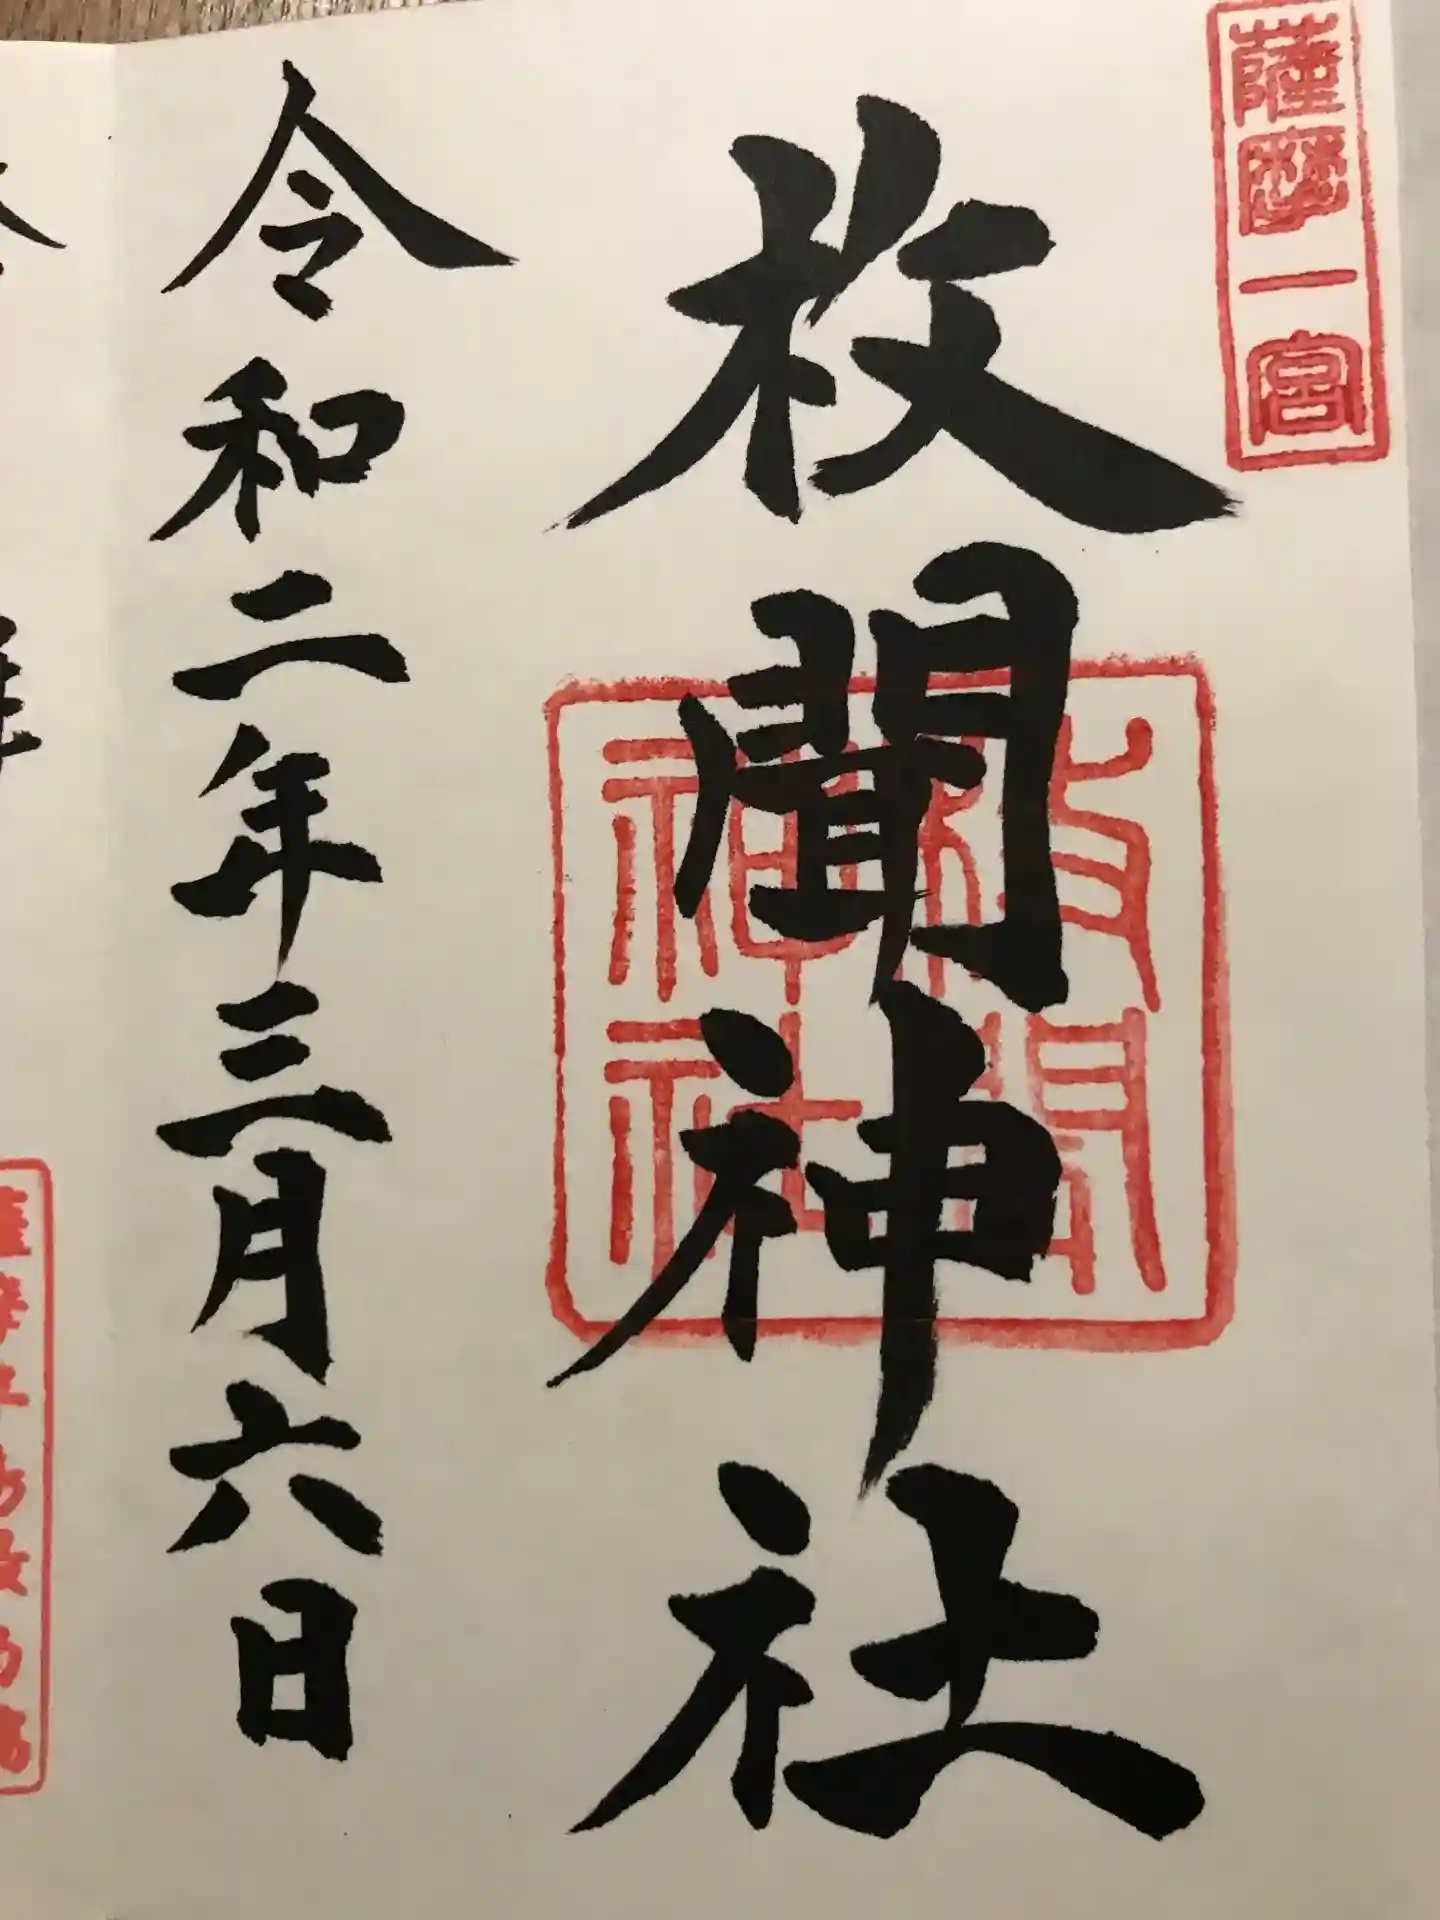 薩摩一宮
枚聞神社
枚聞
神社
令和二年三月六日